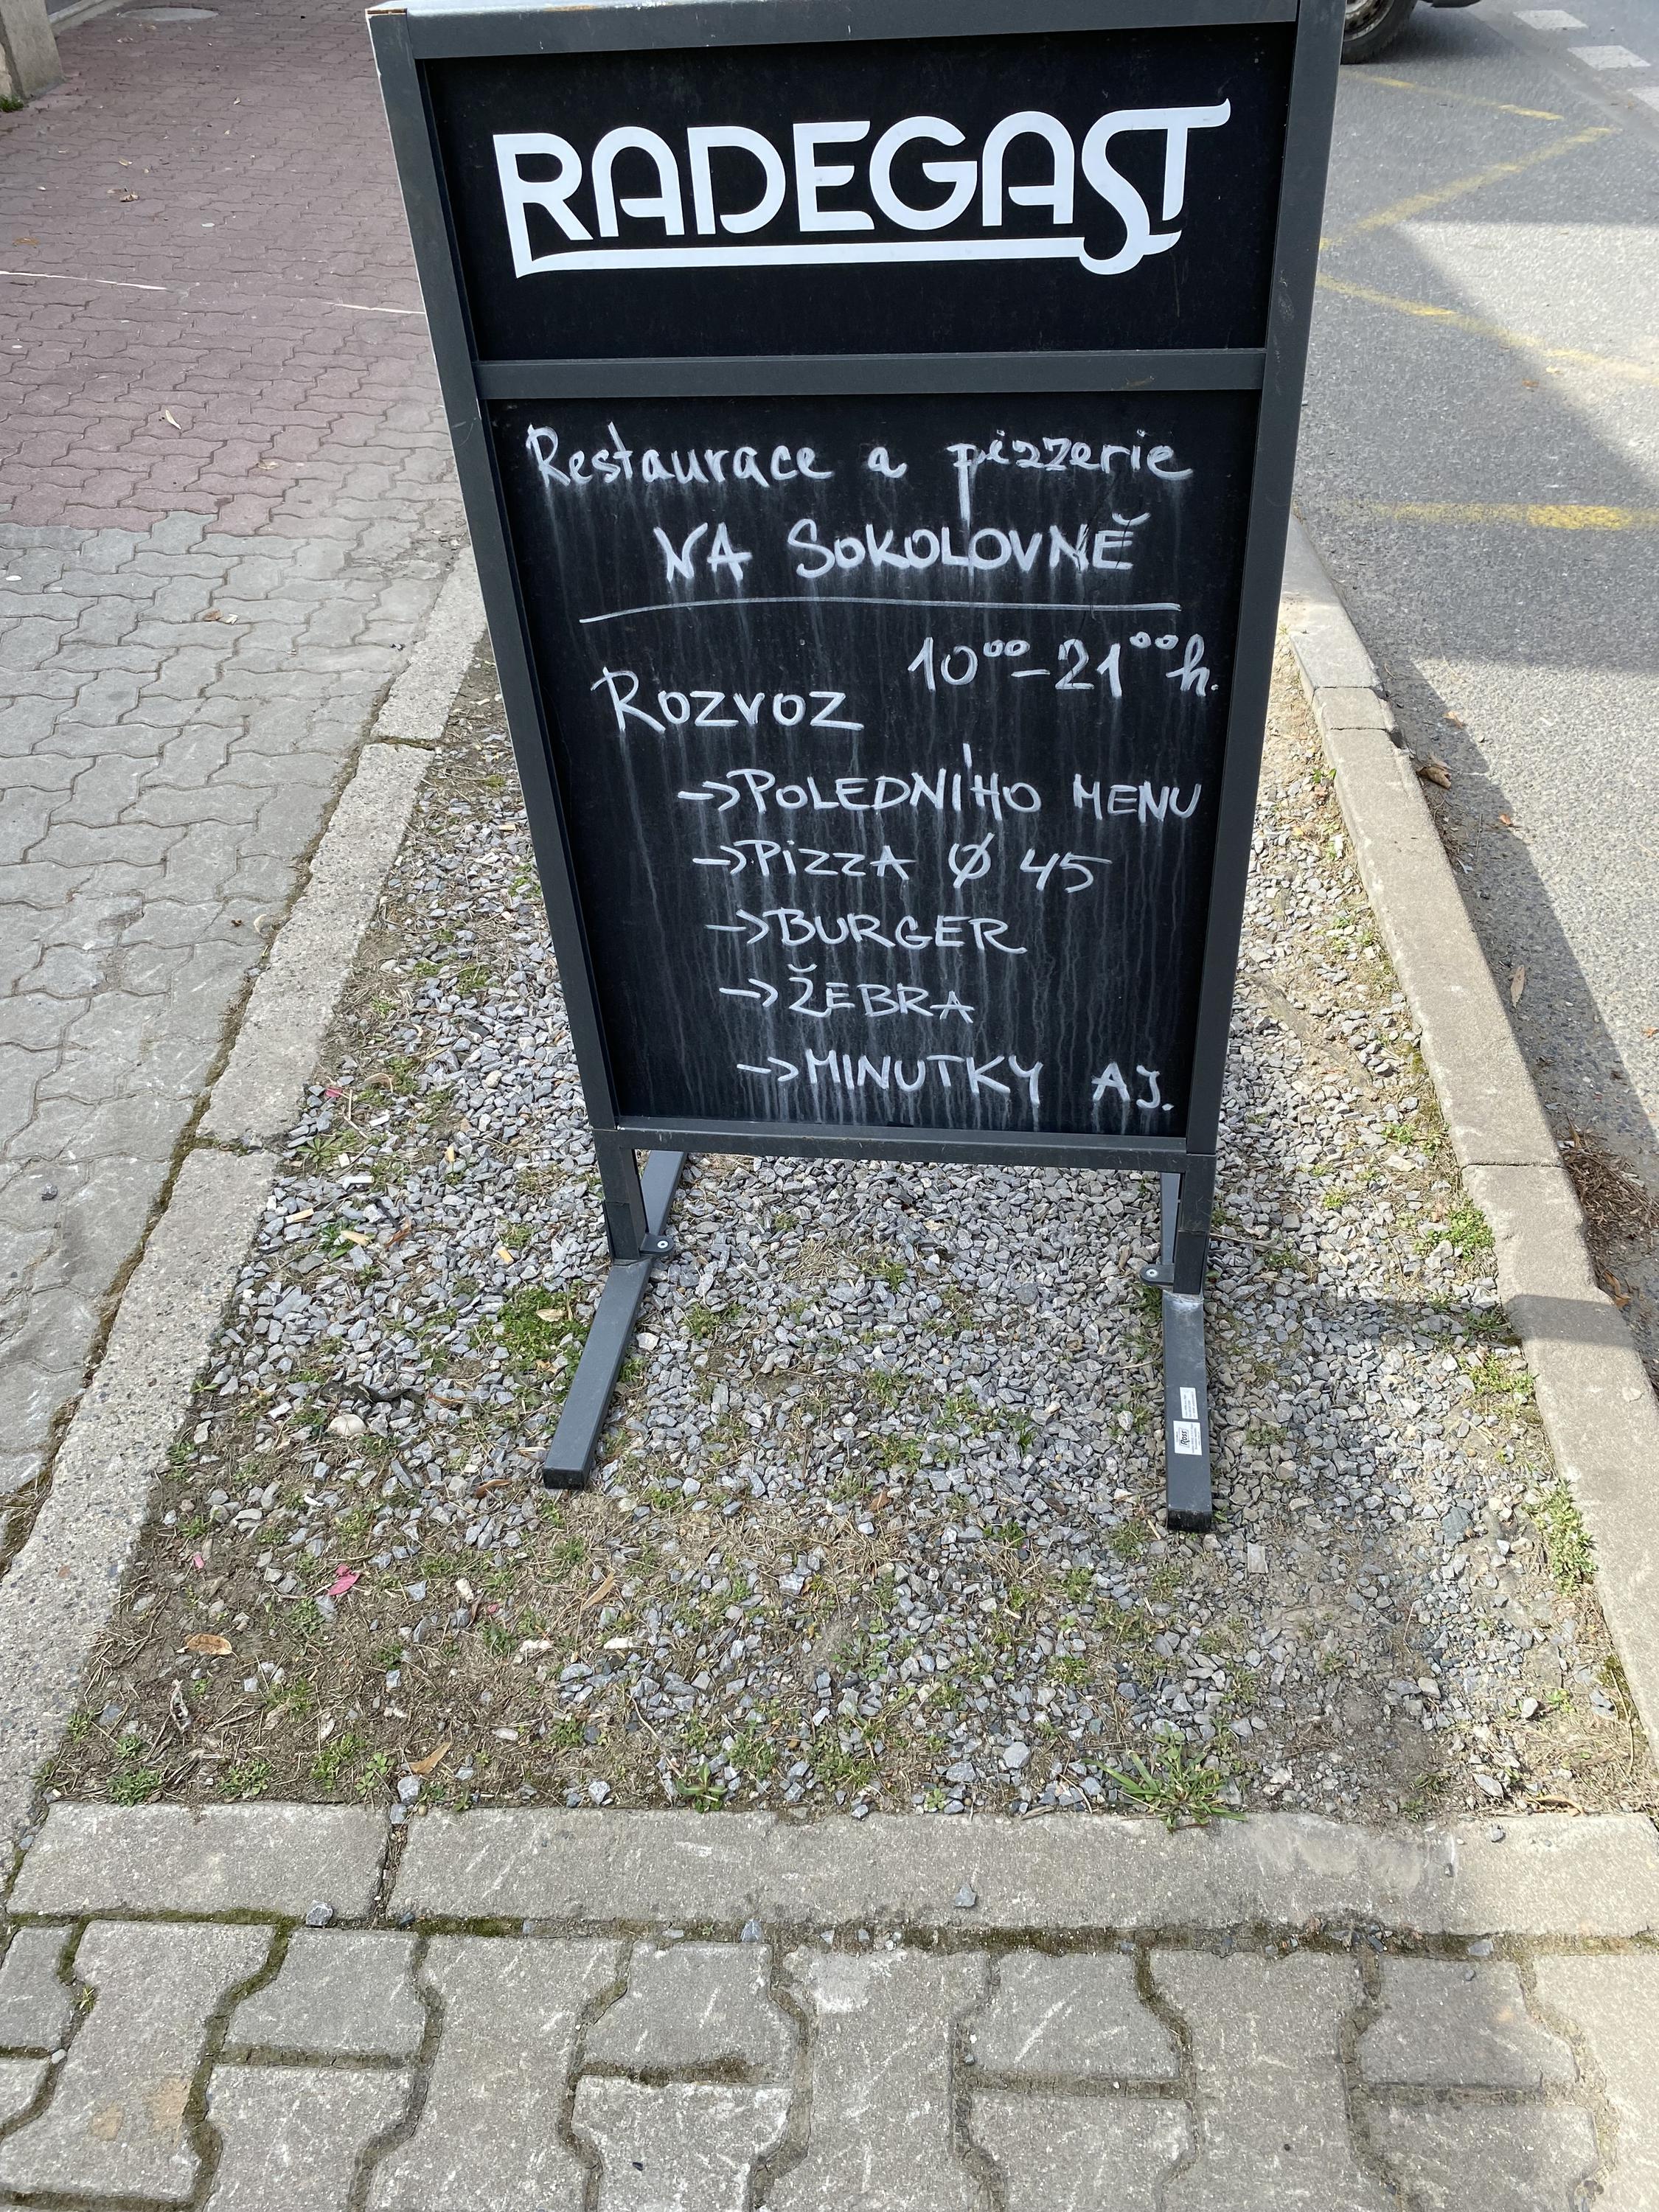 RADEGAST
Restaurace a pizzerie
NA SOKOLOVNĚ
10⁰⁰-21⁰⁰h.
Rozvoz
->POLEDNÍHO MENU
->PiZZA Ø 45
->BURGER
->ŽEBRA
->MINUTKY AJ.